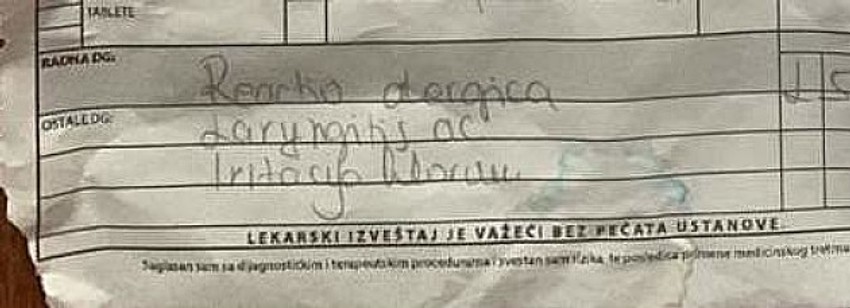 TABLETE
RADNA DG:
Reactio alergica
OSTALE DG:
Laryngitis ac
Iritacija hlorom
LEKARSKI IZVEŠTAJ JE VAŽEĆI BEZ PEČATA USTANOVE
Saglasan sam sa dijagnostičkim i terapeutskim procedurama i svestan sam rizika, te posledica primene medicinskog tretma